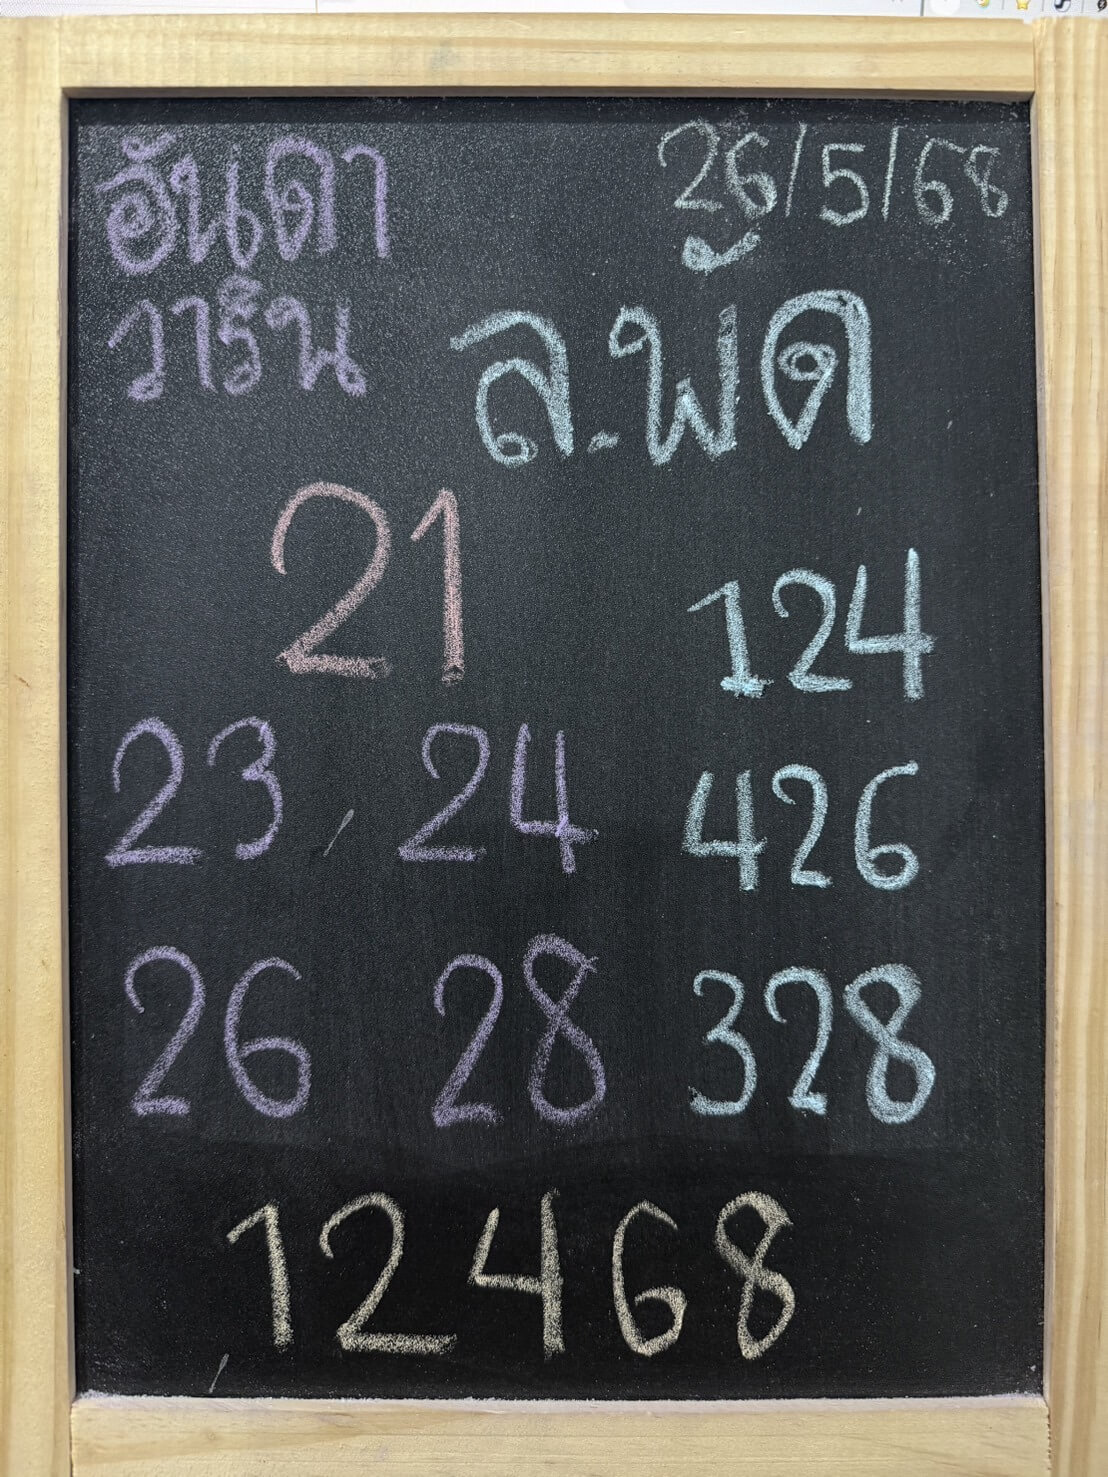 อันดา
วาริน
26/5/68
ล.พัด
21
124
23, 24
426
26 28
328
12468